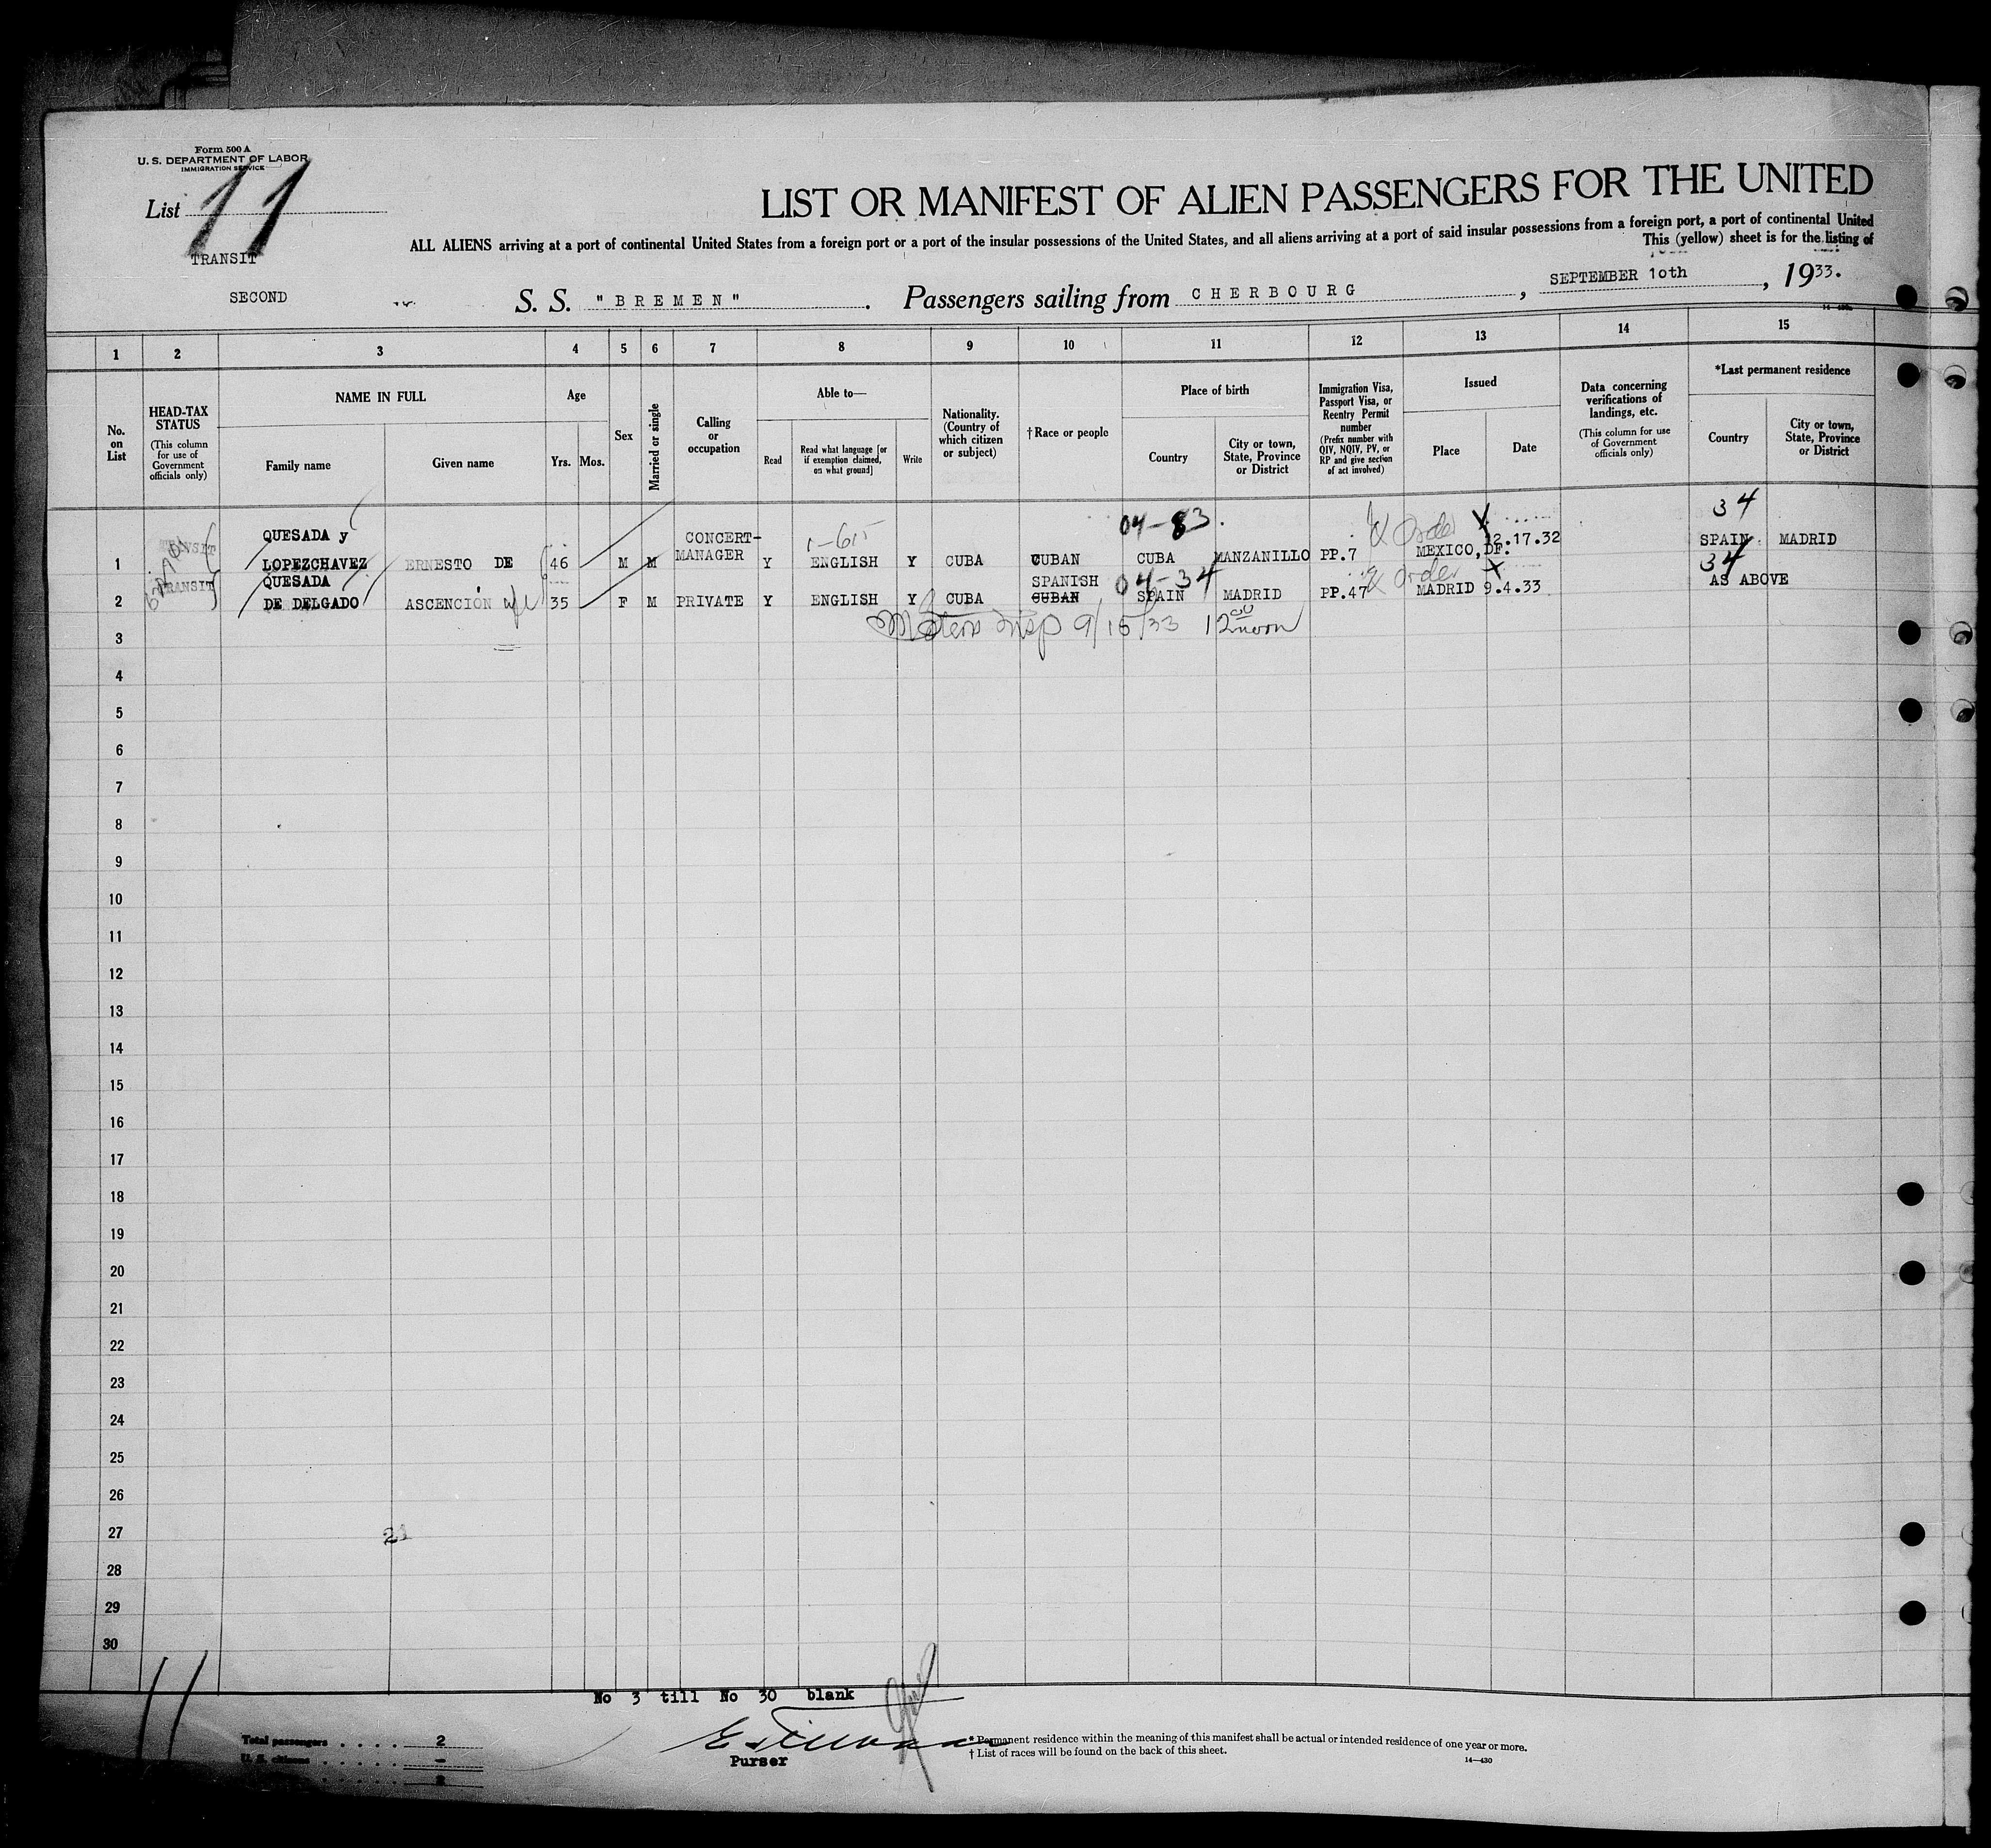 Form 500 A
U. S. DEPARTMENT OF LABOR
IMMIGRATION SERVICE
List 11
TRANSIT
LIST OR MANIFEST OF ALIEN PASSENGERS FOR THE UNITED
ALL ALIENS arriving at a port of continental United States from a foreign port or a port of the insular possessions of the United States, and all aliens arriving at a port of said insular possessions from a foreign port, a port of continental United
This (yellow) sheet is for the listing of
SECOND S. S. "BREMEN". Passengers sailing from CHERBOURG, SEPTEMBER 10th, 1933.
1 2 3 4 5 6 7 8 9 10 11 12 13 14 15
No. on List
HEAD-TAX STATUS
(This column for use of Government officials only)
NAME IN FULL
Family name Given name
Age
Yrs. Mos.
Sex
Married or single
Calling or occupation
Able to—
Read
Read what language [or if exemption claimed, on what ground]
Write
Nationality. (Country of which citizen or subject)
†Race or people
Place of birth
Country
City or town, State, Province or District
Immigration Visa, Passport Visa, or Reentry Permit number
(Prefix number with QIV, NQIV, PV, or RP and give section of act involved)
Issued
Place Date
Data concerning verifications of landings, etc.
(This column for use of Government officials only)
*Last permanent residence
Country
City or town, State, Province or District
04-83. 34
QUESADA y CONCERT- 1-615 Order X 12.17.32
1 TRANSIT LOPEZCHAVEZ ERNESTO DE 46 M M MANAGER Y ENGLISH Y CUBA CUBAN CUBA MANZANILLO PP.7 MEXICO,DF. SPAIN MADRID
QUESADA SPANISH 04-34 Order X 34
2 TRANSIT DE DELGADO ASCENCION w/c 35 F M PRIVATE Y ENGLISH Y CUBA CUBAN SPAIN MADRID PP.47 MADRID 9.4.33 AS ABOVE
3 Insp 9/15/33 12 00 noon
4
5
6
7
8
9
10
11
12
13
14
15
16
17
18
19
20
21
22
23
24
25
26
27 21
28
29
30
11
No 3 till No 30 blank
Purser
Total passengers . . . . 2
U. S. citizens . . . . . —
2
* Permanent residence within the meaning of this manifest shall be actual or intended residence of one year or more.
† List of races will be found on the back of this sheet.
14—430